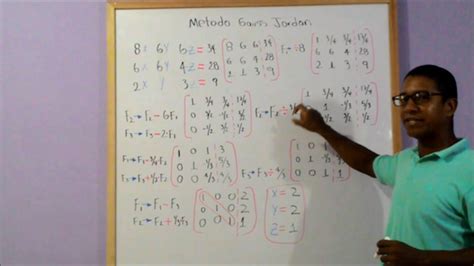 Metodo Gauss Jordan
8x 6y 6z = 34
6x 6y 4z = 28
2x y 3z = 9
8 6 6 34
6 6 4 28
2 1 3 9
F₁→÷8
1 3/4 3/4 17/4
6 6 4 28
2 1 3 9
F₂→F₂-6F₁
F₃→F₃-2F₁
1 3/4 3/4 17/4
0 3/2 -1/2 5/2
0 -1/2 3/2 1/2
F₂→F₂÷3/
1 3/4 3/4 17/4
1 -1/3 5/3
3/2 1/2
F₁→F₁-3/4F₂
F₃→F₃+1/2F₂
1 0 1 3
0 1 -1/3 5/3
0 0 4/3 4/3
F₃→F₃÷4/3
1 0 1
0 1
0 0 1
F₁→F₁-F₃
F₂→F₂+1/3F₃
1 0 0 2
0 1 0 2
0 0 1 1
x = 2
y = 2
z = 1